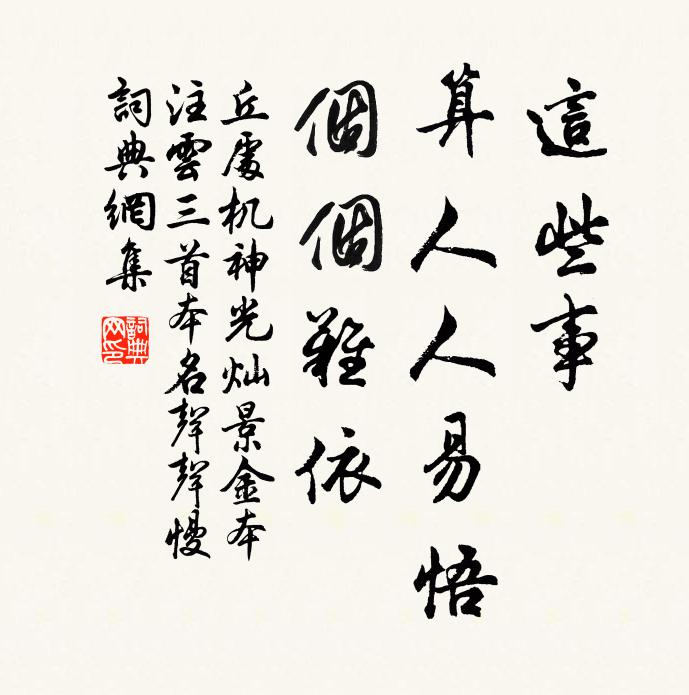 這些事
算人人易悟
個個難依
丘處机神光灿景金本
注雲三首本名聲聲慢
詞典網集
詞典网印